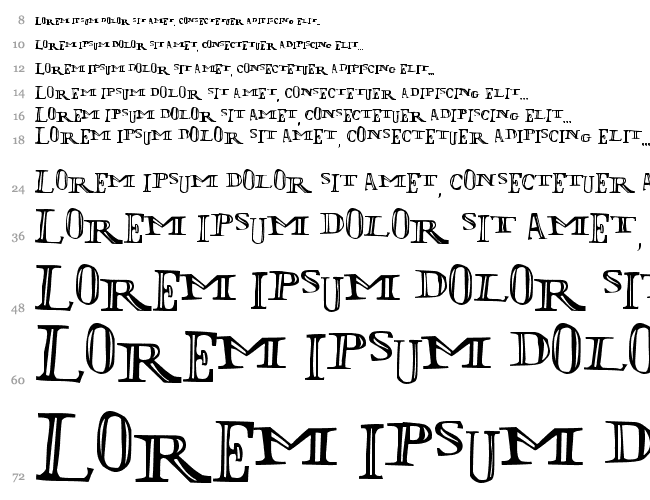 8 LOREM IPSUM DOLOR SIT AMET, CONSECTETUER ADIPISCING ELIT...
10 LOREM IPSUM DOLOR SIT AMET, CONSECTETUER ADIPISCING ELIT...
12 LOREM IPSUM DOLOR SIT AMET, CONSECTETUER ADIPISCING ELIT...
14 LOREM IPSUM DOLOR SIT AMET, CONSECTETUER ADIPISCING ELIT...
16 LOREM IPSUM DOLOR SIT AMET, CONSECTETUER ADIPISCING ELIT...
18 LOREM IPSUM DOLOR SIT AMET, CONSECTETUER ADIPISCING ELIT...
24 LOREM IPSUM DOLOR SIT AMET, CONSECTETUER A
36 LOREM IPSUM DOLOR SIT AMET,
48 LOREM IPSUM DOLOR SIT
60 LOREM IPSUM DOLO
72 LOREM IPSUM D